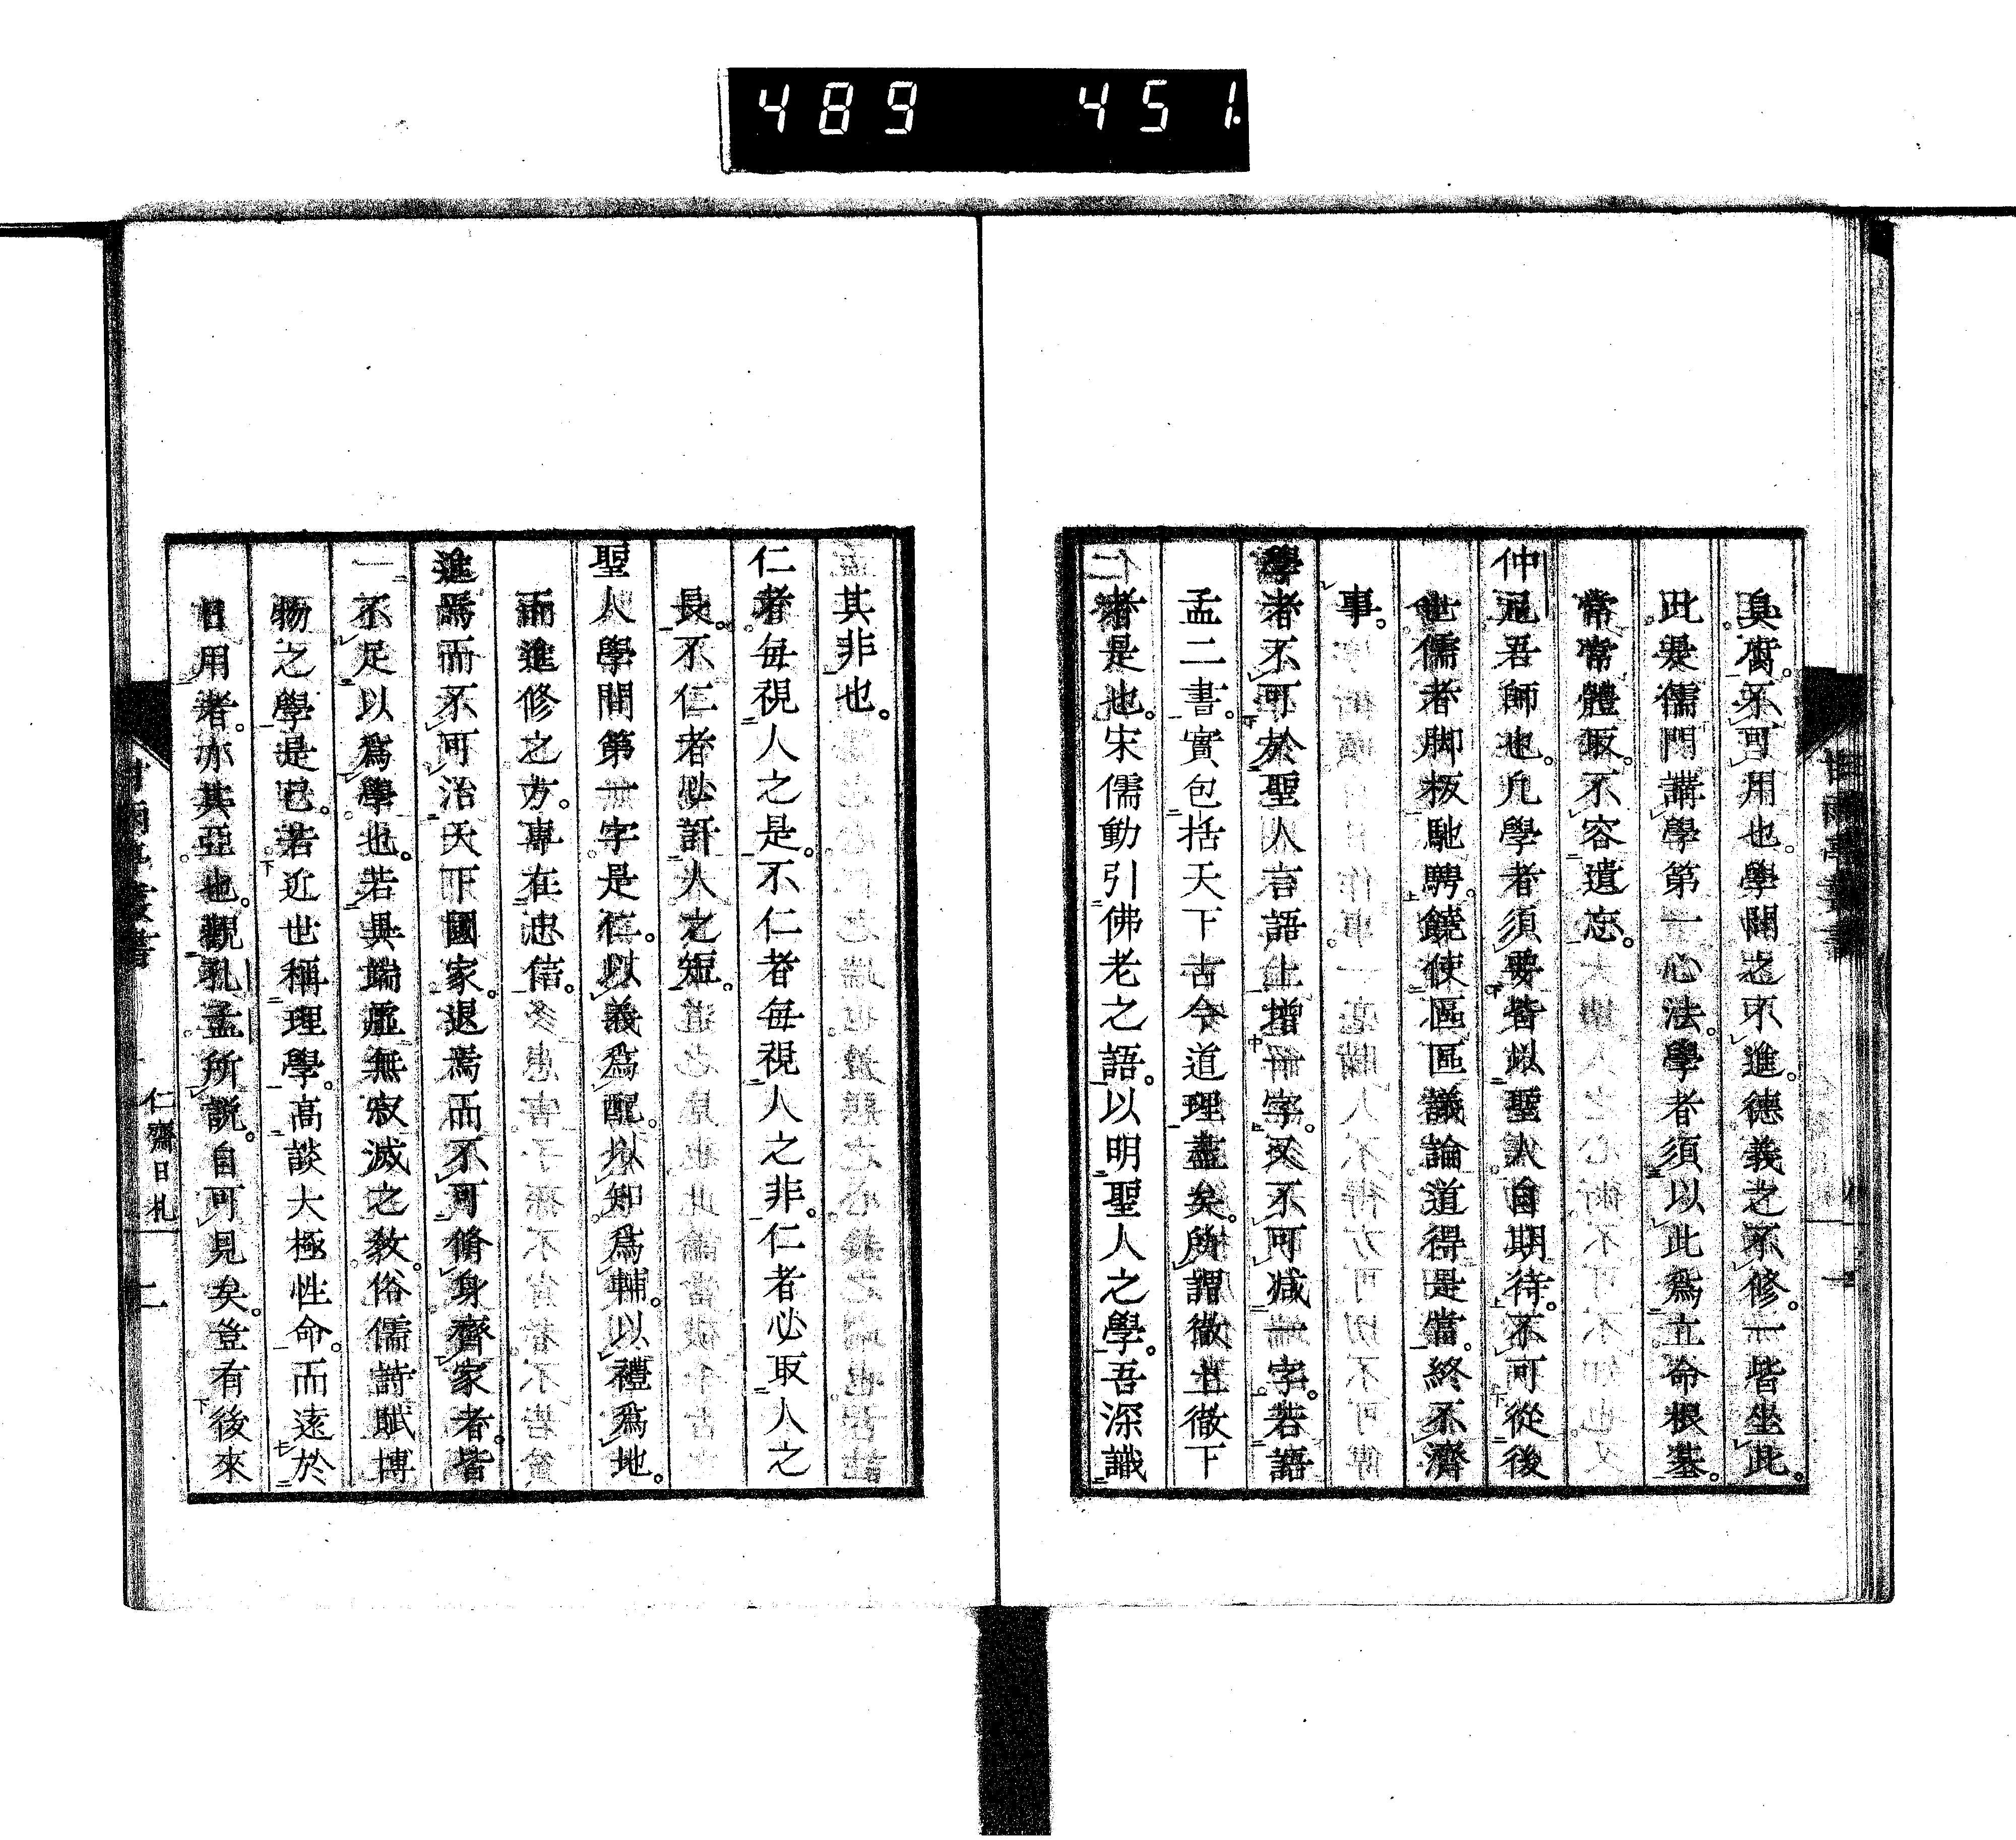 489 451.
臭腐。不可用也。學問之不進。德義之不修。一皆坐此。
此是儒門講學第一心法。學者須以此爲立命根基。
常常體取。不容遺忘。
仲尼吾師也。凡學者須要皆以聖人自期待。不可從後
世儒者脚板馳騁。饒使區區議論道得是當。終不濟
事。
學者不可於聖人言語上增一字。又不可減一字。若語
孟二書。實包括天下古今道理盡矣。所謂徹上徹下
者是也。宋儒動引佛老之語。以明聖人之學。吾深識
其非也。
仁者每視人之是。不仁者每視人之非。仁者必取人之
長。不仁者必訐人之短。
聖人學問第一字是仁。以義爲配。以知爲輔。以禮爲地。
而進修之方。專在忠信。
進焉而不可治天下國家。退焉而不可脩身齊家者。皆
不足以爲學也。若異端虛無寂滅之教。俗儒詩賦博
物之學是已。若近世稱理學。高談大極性命。而遠於
日用者。亦其亞也。觀孔孟所説。自可見矣。豈有後來
仁齋日札 二